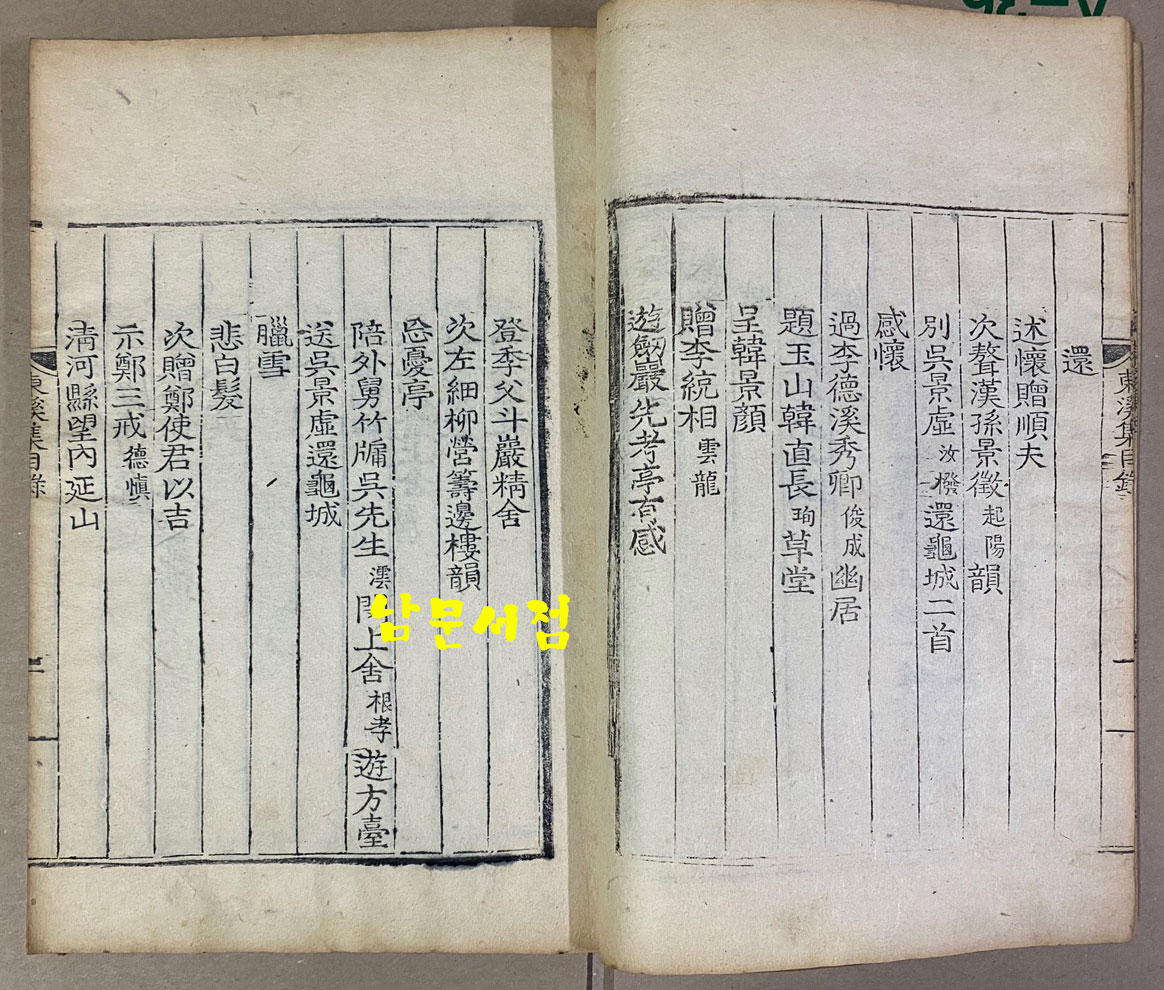 東溪集目錄
還
述懷贈順夫
次聱漢孫景徵起陽韻
別吳景虛汝橃還龜城二首
感懷
過李德溪秀卿俊成幽居
題玉山韓直長珣草堂
呈韓景顔
贈李統相雲龍
遊劒巖先考亭有感
登季父斗巖精舍
次左細柳營籌邊樓韻
忘憂亭
陪外舅竹牖吳先生澐閔上舍根孝遊方臺
送吳景虛還龜城
臘雪
悲白髮
次贈鄭使君以吉
示鄭三戒德愼
淸河縣望內延山
東溪集目錄
二
남문서점